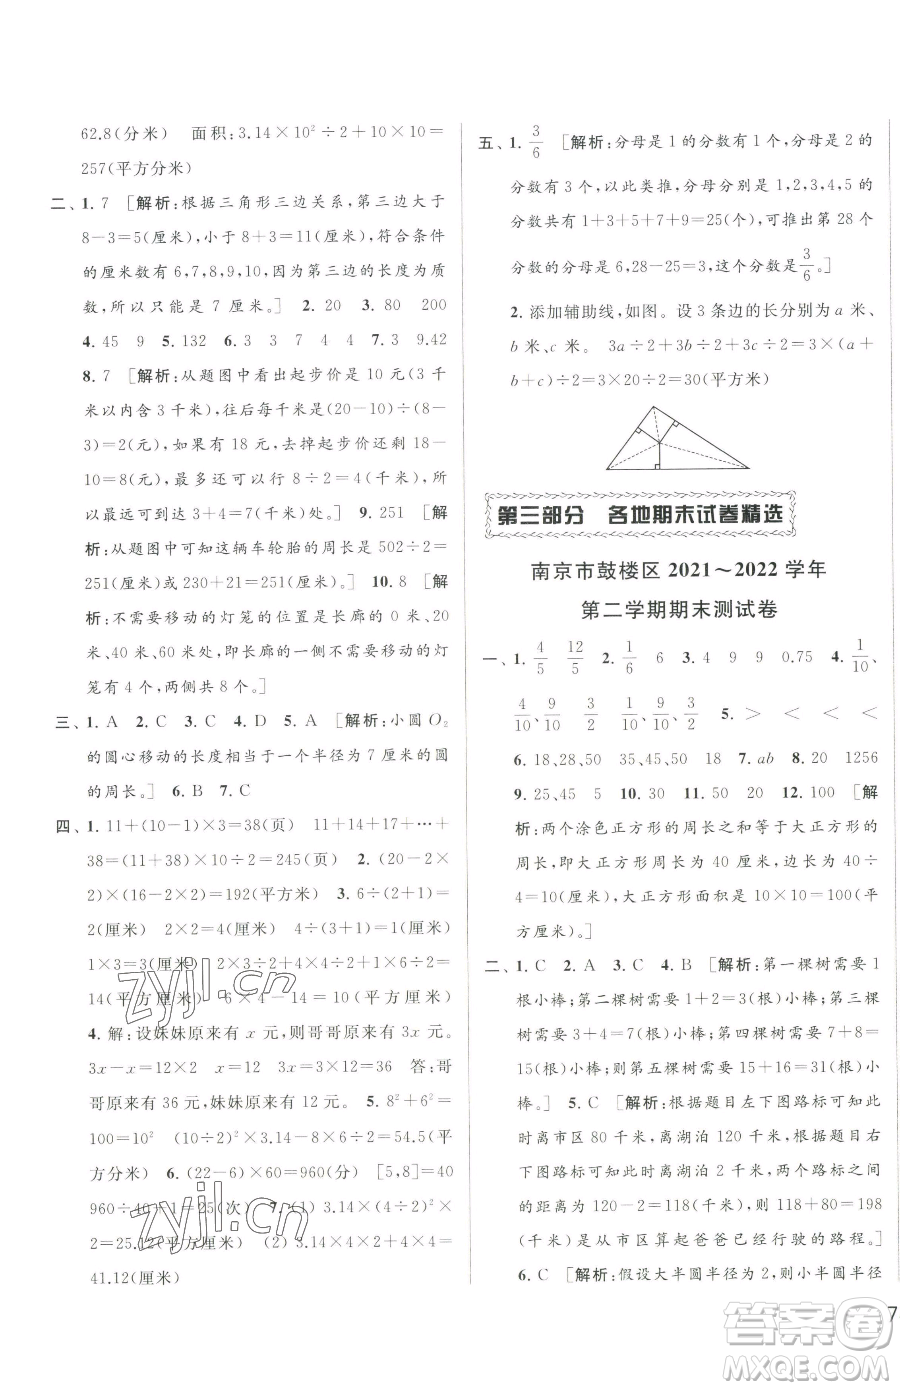 62.8(分米)　面积:3.14×10²÷2+10×10=
257(平方分米)
二、1. 7　[解析:根据三角形三边关系,第三边大于
8-3=5(厘米),小于 8+3=11(厘米),符合条件
的厘米数有 6,7,8,9,10,因为第三边的长度为质
数,所以只能是 7 厘米。]　2. 20　3. 80　200
4. 45　9　5. 132　6. 3　3　4　4　7. 3　9.42
8. 7　[解析:从题图中看出起步价是 10 元(3 千
米以内含 3 千米),往后每千米(20-10)÷(8-
3)=2(元),如果有 18 元,去掉起步价还剩 18-
10=8(元),最多还可以行 8÷2=4(千米),所
以共可达到 3+4=7(千米)。]　9. 251　[解
析:从题图中可知这辆车轮胎的周长是 502÷2=
251(厘米)。]　10. 8　[解
析:不需要移动的灯笼的位置是长廊的 0 米处、
40 米处、80 米处、120 米处,即长廊的一侧不需要移动的灯
笼有 4 个,两侧共 8 个。]
三、1. A　2. C　3. C　4. D　5. A　[解析:小圆 O₂
的圆心移动的长度相当于一个半径为 7 厘米的圆
的周长。]　6. B　7. C
四、1. 11+(10-1)×3=38(页)　11+14+17+…+
38=(11+38)×10÷2=245(页)　2. (20-2×
2)×(16-2×2)=192(平方米)　3. 6÷(2+1)=
2(厘米)　2×2=4(厘米)　4÷(3+1)=1(厘米)
1×3=3(厘米)
14(平方厘米)　6×4-14=10(平方厘米)
4. 解:设妹妹原来有 x 元,则哥哥原来有 3x 元。
3x-x=12×2　x=12　12×3=36　答:哥
哥原来有 36 元,妹妹原来有 12 元。　5. 8²+6²=
100=10²　(10÷2)²×3.14-8×6÷2=54.5(平
方分米)　6. (22-6)×60=960(分)　[5,8]=40
960÷40+1=25(次)　7. (1) 3.14×(4÷2)²×
2=25.12(平方厘米)　(2) 3.14×4×2+4×4=
41.12(厘米)
五、1. 3/6　[解析:分母是 1 的分数有 1 个,分母是 2 的
分数有 3 个,以此类推,分母分别是 1,2,3,4,5 的
分数共有 1+3+5+7+9=25(个),可推出第 28 个
分数的分母为 6,28-25=3,这个分数是 3/6。]
2. 添加辅助线,如图。设 3 条边的长分别为 a 米、
b 米、c 米。　3a÷2+3b÷2+3c÷2=3×(a+
b+c)÷2=3×20÷2=30(平方米)
第三部分　各地期末试卷精选
南京市鼓楼区 2021～2022 学年
第二学期期末测试卷
一、1. 4/5　12/5　2. 1/6　6　3. 4　9　9　0.75　4. 1/10、
4/10、9/10、3/2　1/10、9/10、3/2　5. >　<　<　<
6. 18,28,50　35,45,50　50　7. ab　8. 20　1256
9. 25,45　8　10. 65　11. 750　12. 100　[解
析:两个涂色正方形的周长之和等于大正方形的
周长,即大正方形的周长是 40 厘米,边长为 40÷
4=10(厘米),大正方形面积是 10×10=100(平
方厘米)。]
二、1. C　2. A　3. C　4. B　[解析:第一棵树需要 1
根小棒;第二棵树需要 1+2=3(根)小棒;第三棵
树需要 3+4=7(根)小棒;第四棵树需要 7+8=
15(根)小棒;则第五棵树需要 15+16=31(根)小
棒。]　5. C　[解析:根据题目左下图路标可知此
时离市区 80 千米,离湖泊 120 千米,根据题目右
下图路标可知离湖泊 2 千米,两个路标之间的
的距离为 120-2=118(千米),则 118+80=198
(千米)是从市区算起爸爸已经行驶的路程。]
6. C　[解析:假设大半圆半径为 2,则小半圆半径
7
zyjl.cn
zyjl.cn
答案圈
MXQE.COM